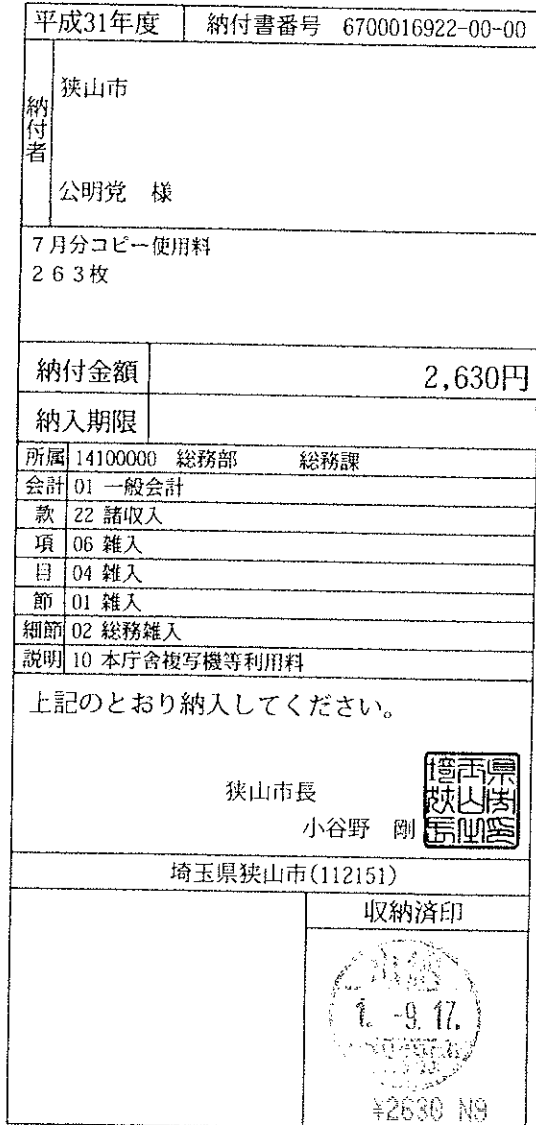 平成31年度 納付書番号 6700016922-00-00
納付者
狭山市
公明党 様
7月分コピー使用料
263枚
納付金額 2,630円
納入期限
所属 14100000 総務部 総務課
会計 01 一般会計
款 22 諸収入
項 06 雑入
目 04 雑入
節 01 雑入
細節 02 総務雑入
説明 10 本庁舎複写機等利用料
上記のとおり納入してください。
狭山市長
小谷野 剛
埼玉県狭山市(112151)
収納済印
1. -9. 17.
¥2630 N9